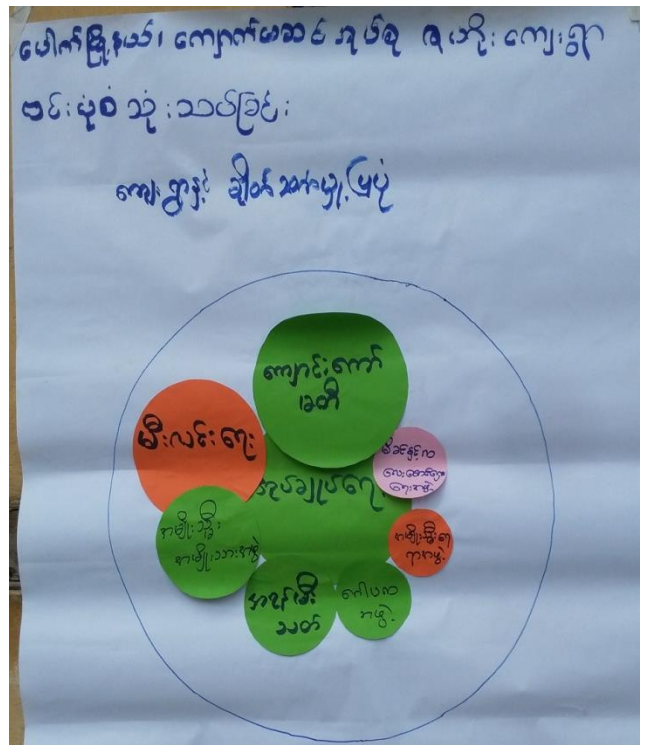 ပေါက်မြို့နယ်၊ ကျောက်မဆင်အုပ်စု ဇဟိုးကျေးရွာ
ဗင်းပုံစံသုံးသပ်ခြင်း
ကျေးရွာနှင့် ချိတ်ဆက်မှုပြပုံ
ကျောင်းကော်
မတီ
မီးလင်းရေး
မိခင်နှင့်က
လေးစောင့်ရှောက်
ရေးအဖွဲ့
အုပ်ချုပ်ရေး
အမျိုးသမီး
အမျိုးသားအဖွဲ့
အမျိုးသမီးရေး
ရာအဖွဲ့
အရန်မီး
သတ်
ဂေါပက
အဖွဲ့